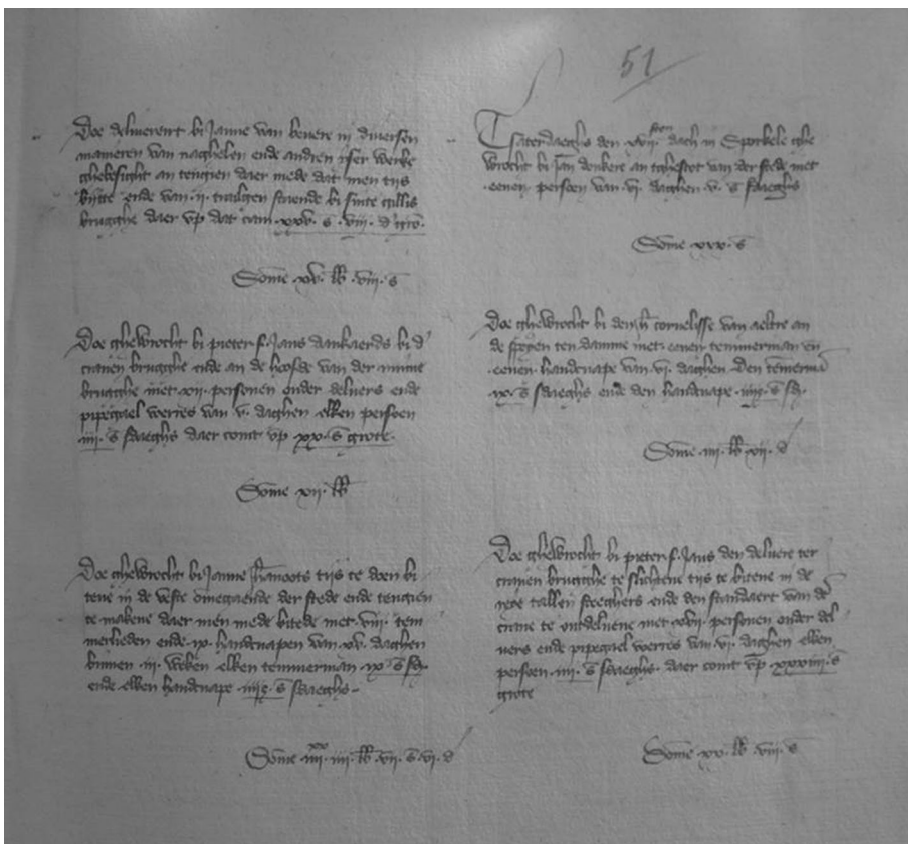 51
Doe deliverent bi Janne van bevere in diversen
manieren van naghelen ende andren iser werke
ghebesicht an tenghen daer mede dat men tijs
bijtte ende van .ii. trailgen staende bi sinte gillis
brugghe daer up dat cam .xxv. s. viii. d' gro.
Some xv. lb. viii. s
Doe ghewrocht bi pieter f. Jans dankaerds bi d'
cranen brugghe ende an de hoofde van der
brugghe met .xii. personen onder delvers ende
pipegael voerres van .v. daghen elken persoen
.iiii. s sdaeghs daer comt up .xx. s grote.
Some xii. lb
Doe ghewrocht bi Janne tijs te doen bi
tene in de veste omegaende der stede ende
te makene daer men mede bitede met .viii. tem
merlieden ende .ix. handcnapen van .xv. daghen
binnen .iii. weken elken temmerman .ix. s sd.
ende elken handcnape s sdaeghs.
Some iiii. lb. vii. s. vi. d
Tsaterdaeghs den .xvii. sten dach in Sporkele ghe
wrocht bi Jan donkere an tghescot van der stede met
.eenen. persoen van .vi. daghen .v. s sdaeghs
Some xxx. s
Doe ghewrocht bi cornelisse van aeltre an
de ten damme met .eenen temmerman en
.eenen. handcnape van .vi. daghen. Den temerman
.ix. s sdaeghs ende den handcnape s sd.
Some iiii. lb. xii. d
Doe ghewrocht bi pieter f. Jans den delvere ter
cranen brugghe te slichtene tijs te bitene in de
reye tallen steeghers ende den standaert van de
crane te ontdelvene met .xvii. personen onder del
vers ende pipegael voerres van .vi. daghen elken
persoen .iiii. s sdaeghs. daer comt up .xxxiiii. s
grote
Some xx. lb. viii. s